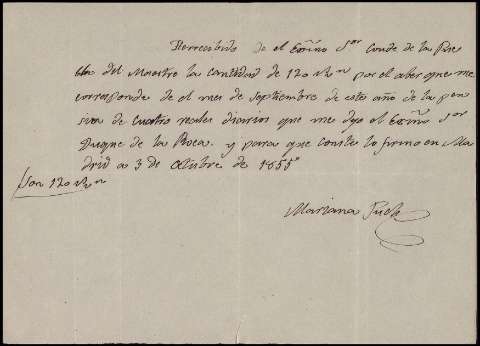 He rrecibido de el Exmo Sor Conde de la Pue
bla del Maestre la cantidad de 120 rs vn por el aber que me
corresponde de el mes de Septiembre de este año de la pen
sion de cuatro reales diarios que me dejo el Exmo Sor
Duque de la Roca. y para que conste lo firmo en Ma
drid a 3 de Octubre de 1855"
Son 120 rs vn
Mariana